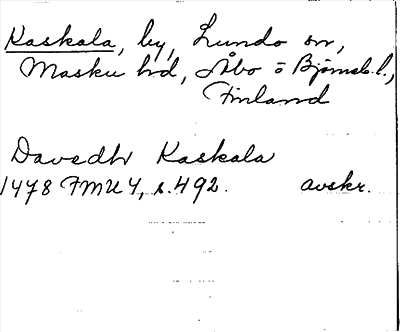 Kaskala, by, Lundo sn,
Masku hd, Åbo o Björneb. l.,
Finland
Davedh Kaskala
1478 FMU 4, s. 492. avskr.